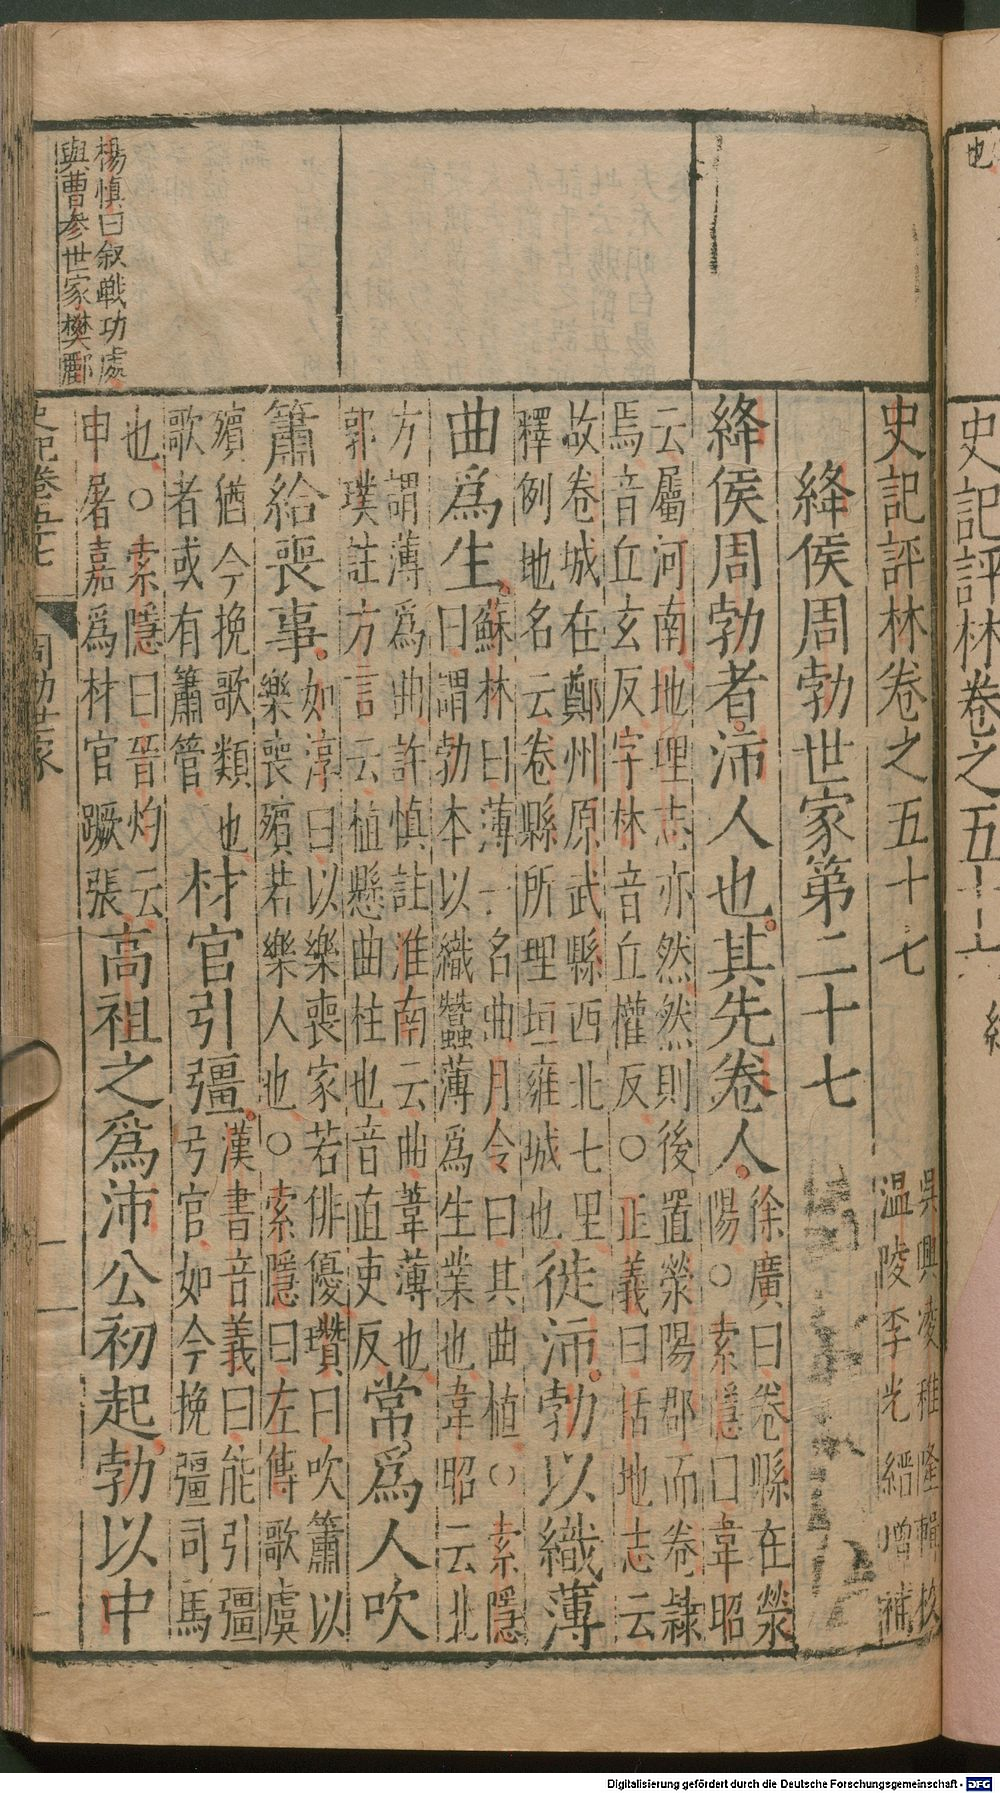 史記評林卷之五十七
吳興凌稚隆輯校
温陵李光縉增補
絳侯周勃世家第二十七
絳侯周勃者沛人也其先卷人徐廣曰卷縣在滎
陽○索隱曰韋昭
云屬河南地理志亦然然則後置滎陽郡而卷隷
焉音丘玄反字林音丘權反○正義曰括地志云
故卷城在鄭州原武縣西北七里
釋例地名云卷縣所理垣雍城也徙沛勃以織薄
曲爲生蘇林曰薄一名曲月令曰其曲植○索隱
曰謂勃本以織蠶薄爲生業也韋昭云北
方謂薄爲曲許慎註淮南云曲葦薄也
郭璞註方言云植懸曲柱也音直吏反常爲人吹
簫給喪事如淳曰以樂喪家若俳優瓚曰吹簫以
樂喪殯若樂人也○索隱曰左傳歌虞
殯猶今挽歌類也
歌者或有簫管材官引彊漢書音義曰能引彊
弓官如今挽彊司馬
也○索隱曰晉灼云
申屠嘉爲材官蹶張高祖之爲沛公初起勃以中
楊慎曰叙戰功處
與曹參世家樊酈
史記卷五十七
周勃世家
一
也
史記評林卷之五十七
Digitalisierung gefördert durch die Deutsche Forschungsgemeinschaft - DFG